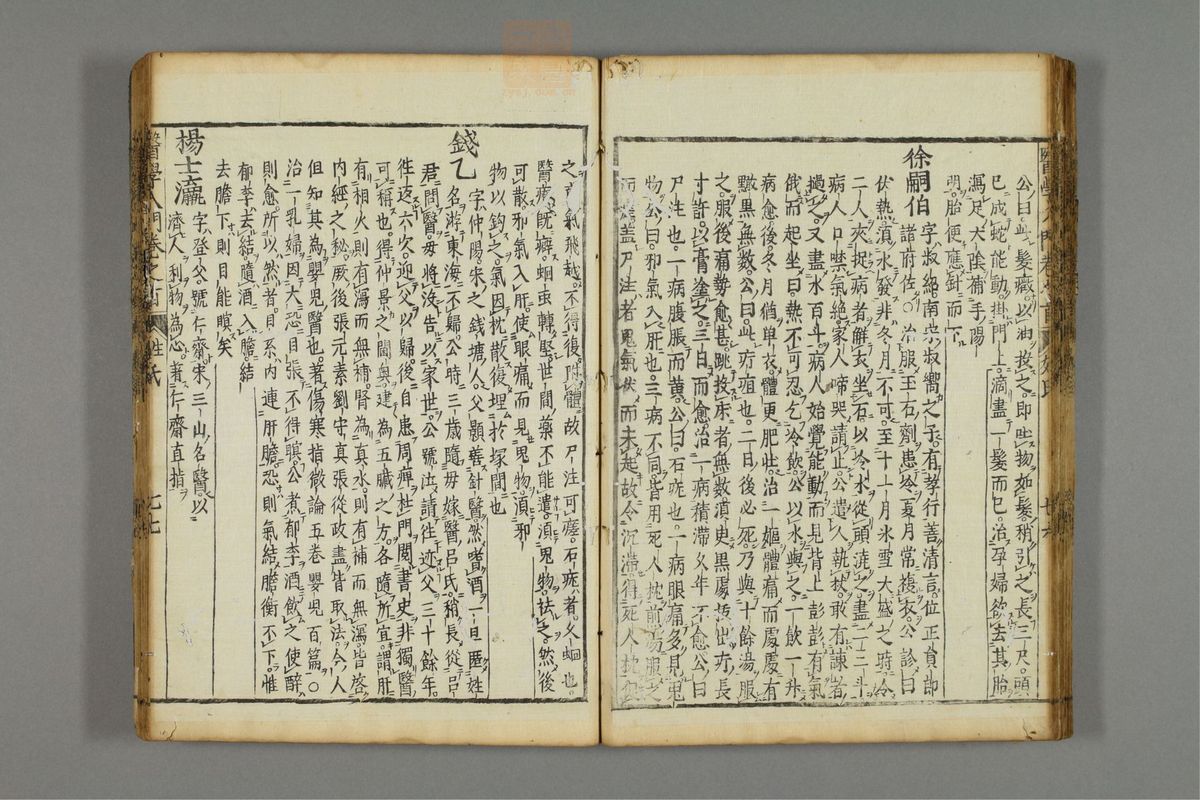 公曰此髮癥以油投之即吐物如髮稍引之長三尺頭
已成蛇能動掛門上滴盡一髮而已治孕婦欲去其胎
瀉足太陰補手陽
明胎便應針而下
徐嗣伯
字叔紹南宋叔嚮之子有孝行善清言位正員郎
諸府佐○治服玉石劑患冷夏月常複衣公診曰
伏熱湏水發非冬月不可至十一月氷雪大盛之時令
二人夾捉病者解衣坐石以冷水從頭澆之盡二十斗
病人口噤氣絶家人啼哭請止公遣人執杖敢有諫者
撾之又盡水百斗病人始覺能動而見背上彭彭有氣
俄而起坐曰熱不可忍乞冷飲公以水與之一飲一升
病愈後冬月猶單衣體更肥壯治一嫗體痛而處處有
黶黑無數公曰此疔疽也二日後必死乃與十餘湯服
之服後痛勢愈甚跳投床者無數湏臾黑處拔出疔長
寸許以膏塗之三日而愈治一病積滯久年不愈公曰
尸注也一病腹脹而黄公曰石蚘也一病眼痛多見鬼
物公曰邪氣入肝也三病不同皆用死人枕前湯服之
而愈蓋尸注者鬼氣伏而未起故令沉滯得死人枕
之氣飛越不得復附體故尸注可瘥石蚘者久蛔也
醫療旣癖蛔虫轉堅世間藥不能遣湏鬼物祛之然後
可散邪氣入肝使眼痛而見鬼物湏邪
物以鈎之氣因枕散復埋於塚間也
錢乙
字仲陽宋之錢塘人父顥善針醫然嗜酒一旦匿姓
名游東海不歸公時三歲隨母嫁醫呂氏稍長從呂
君問醫母將没告以家世公號泣請徃迹父三十餘年
徃返六次迎父以歸後自患周痺杜門閲書史非獨醫
可稱也得仲景之閫奥建為五臓之方各隨所宜謂肝
有相火則有瀉而無補腎為真水則有補而無瀉皆啓
内經之秘厥後張元素劉守真張從政盡皆取法今人
但知其為嬰児醫也著傷寒指微論五卷嬰児百篇○
治一乳婦因大恐目張不得瞑公煮郁李酒飲之使醉
則愈所以然者目系内連肝膽恐則氣結膽衡不下惟
郁李去結隨酒入膽結
去膽下則目能瞑矣
楊士瀛
字登父號仁齋宋三山名醫以
濟人利物為心著仁齋直指
醫學入門卷之首
姓氏